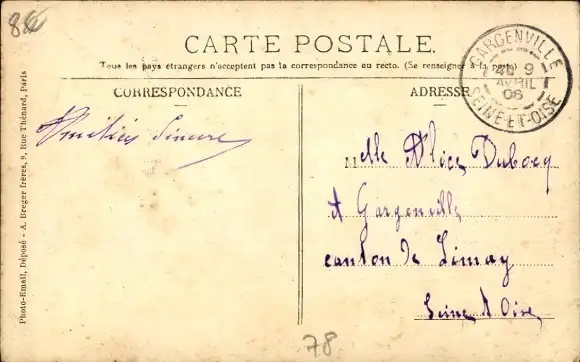 86
CARTE POSTALE.
Tous les pays étrangers n'acceptent pas la correspondance au recto. (Se renseigner à la poste)
GARGENVILLE
9
AVRIL
06
SEINE-ET-OISE
CORRESPONDANCE
Amitiés Sincère
ADRESSE
Melle Alice Dubocq
A Gargenville
canton de Limay
Seine & Oise
78
Photo-Email, Déposé - A. Breger frères, 9, Rue Thénard, Paris